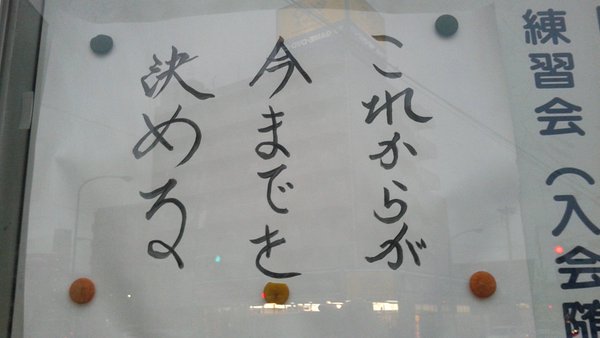 これからが
今までを
決める
練習会(入会随